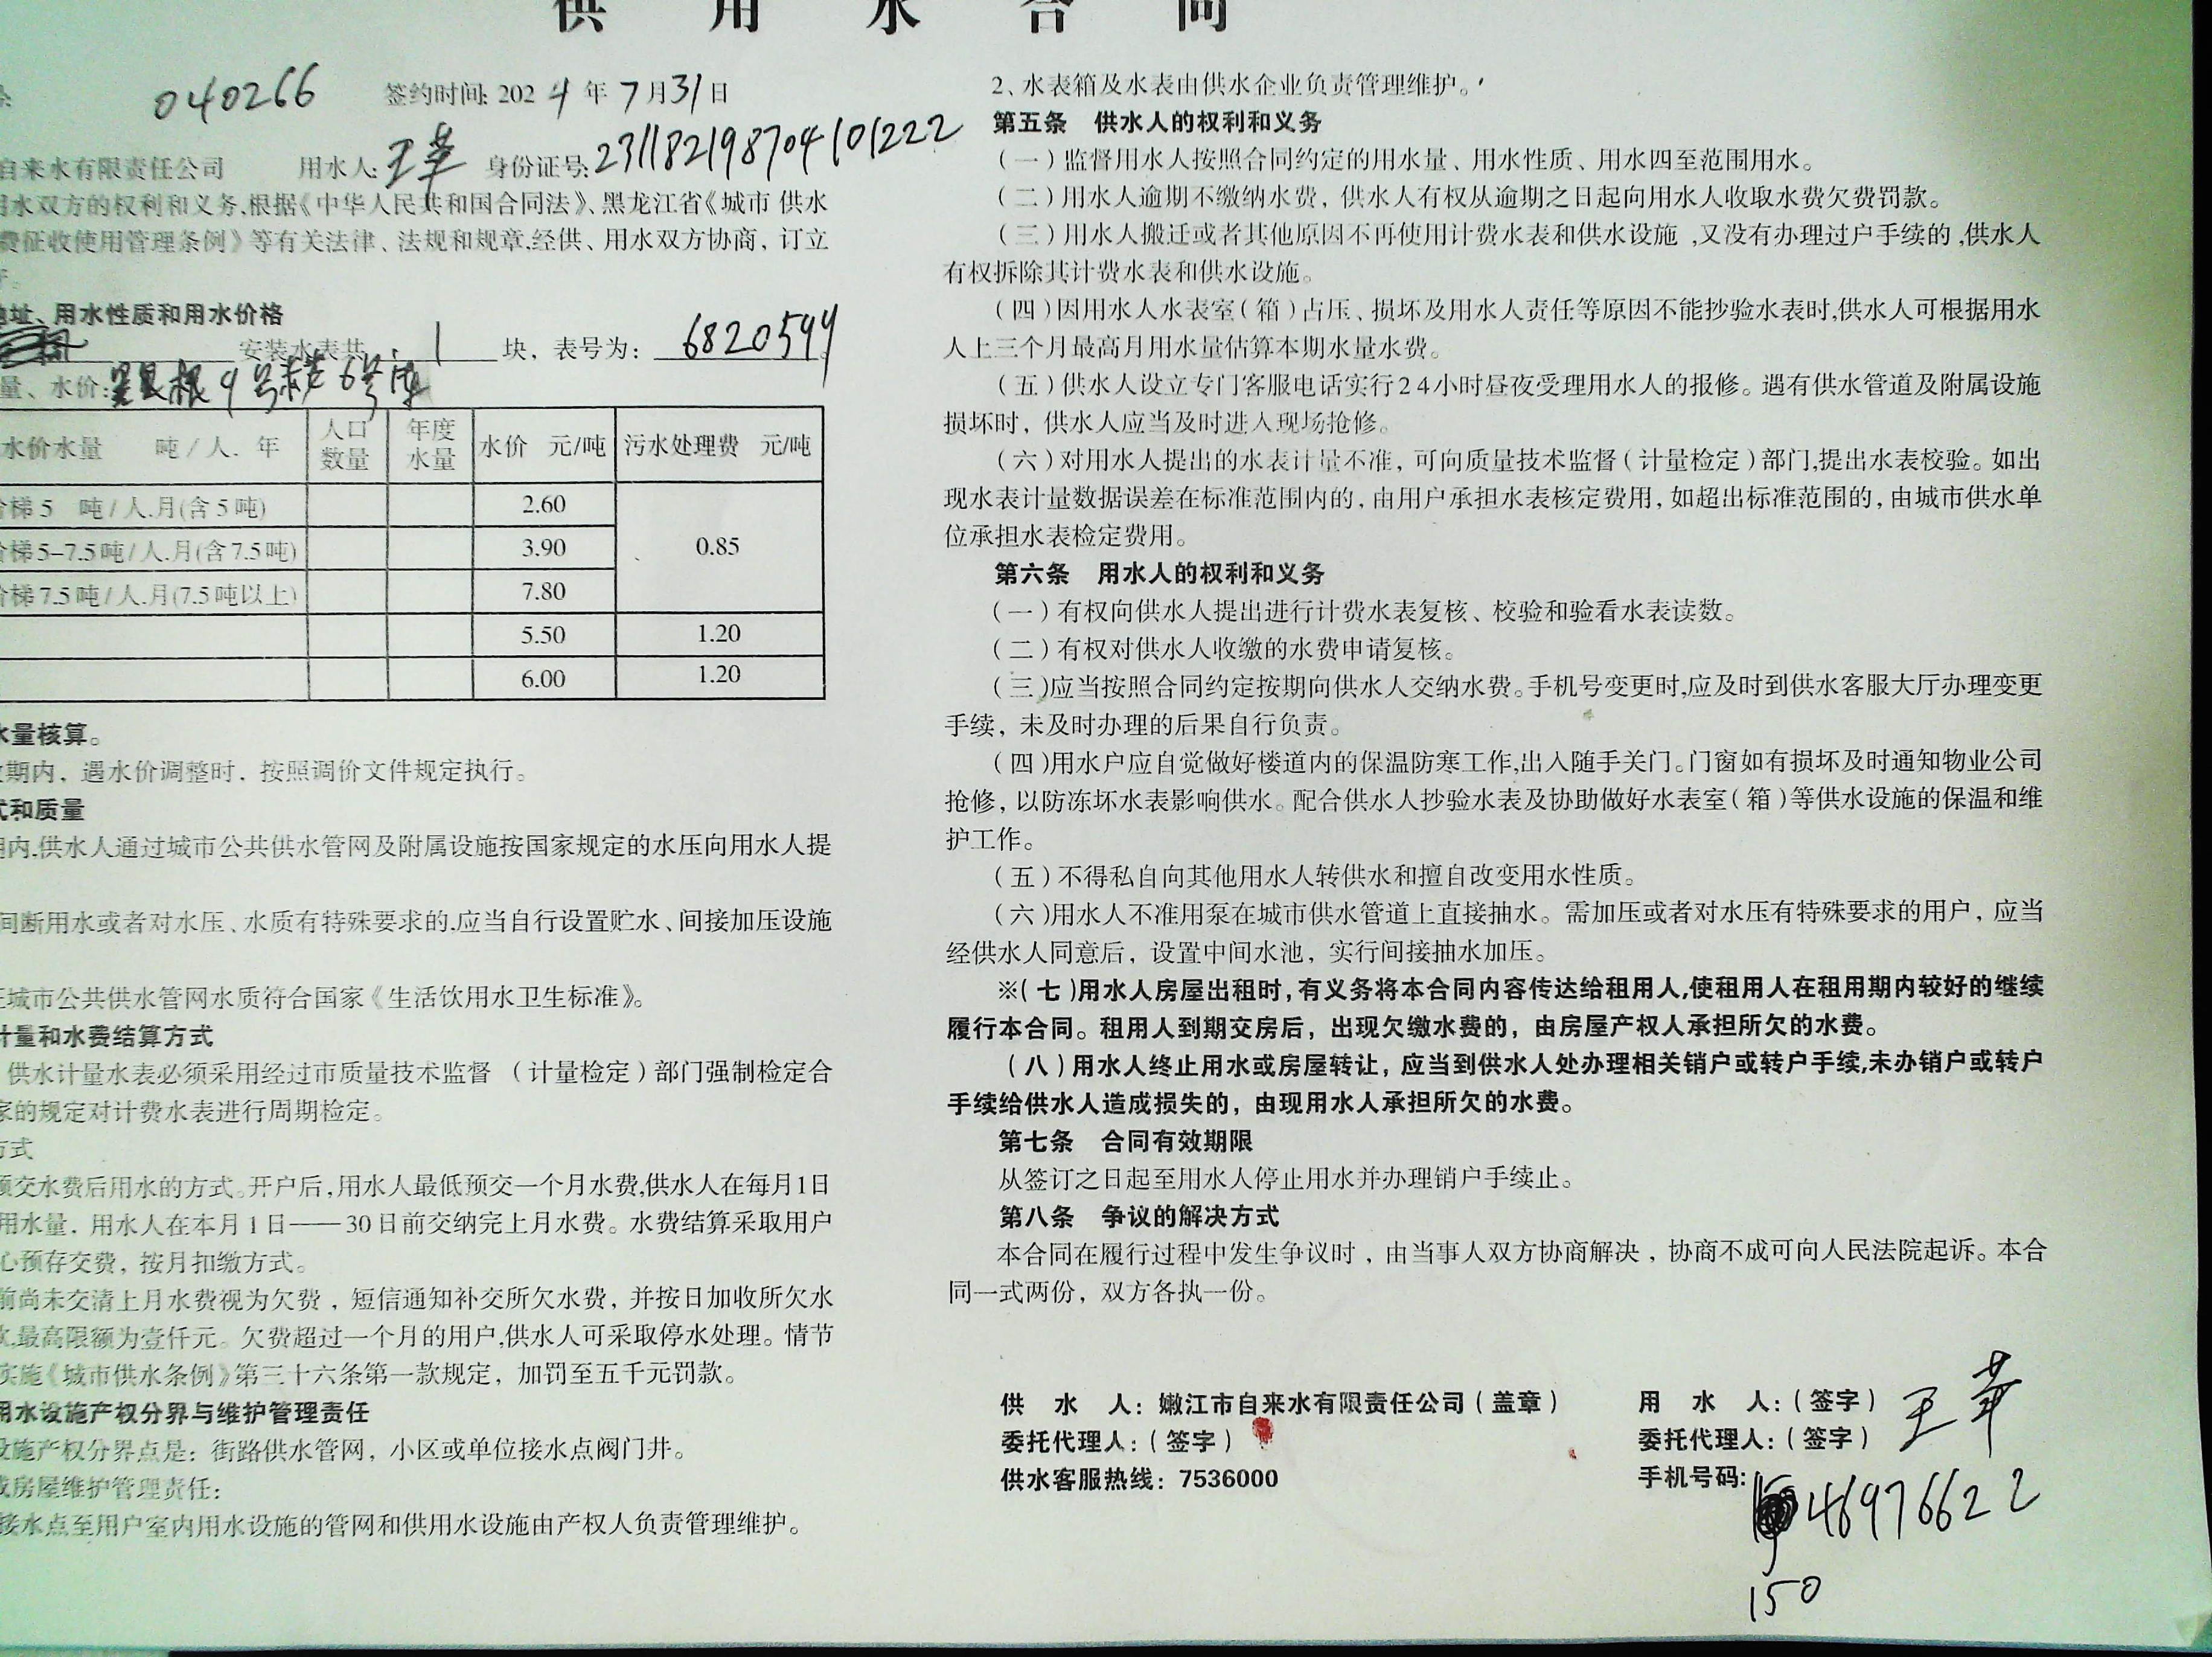 供 用 水 合 同
040266 签约时间: 2024年7月31日
自来水有限责任公司 用水人: 王苹 身份证号:
用水双方的权利和义务,根据《中华人民共和国合同法》、黑龙江省《城市 供水
费征收使用管理条例》等有关法律、法规和规章,经供、用水双方协商, 订立
地址、用水性质和用水价格
安装水表共 1 块, 表号为: 6820594
量、水价: 墨尔根9号楼6号库
水价水量 吨/人. 年 人口数量 年度水量 水价 元/吨 污水处理费 元/吨
阶梯5 吨/人.月(含5吨) 2.60 0.85
阶梯5-7.5吨/人.月(含7.5吨) 3.90
阶梯7.5吨/人.月(7.5吨以上) 7.80
5.50 1.20
6.00 1.20
水量核算。
期内, 遇水价调整时, 按照调价文件规定执行。
式和质量
期内,供水人通过城市公共供水管网及附属设施按国家规定的水压向用水人提
间断用水或者对水压、水质有特殊要求的,应当自行设置贮水、间接加压设施
证城市公共供水管网水质符合国家《生活饮用水卫生标准》。
计量和水费结算方式
供水计量水表必须采用经过市质量技术监督 (计量检定)部门强制检定合
家的规定对计费水表进行周期检定。
方式
预交水费后用水的方式。开户后,用水人最低预交一个月水费,供水人在每月1日
用水量, 用水人在本月1日——30日前交纳完上月水费。水费结算采取用户
心预存交费, 按月扣缴方式。
前尚未交清上月水费视为欠费, 短信通知补交所欠水费, 并按日加收所欠水
最高限额为壹仟元。欠费超过一个月的用户,供水人可采取停水处理。情节
实施《城市供水条例》第三十六条第一款规定, 加罚至五千元罚款。
用水设施产权分界与维护管理责任
设施产权分界点是: 街路供水管网, 小区或单位接水点阀门井。
或房屋维护管理责任:
接水点至用户室内用水设施的管网和供用水设施由产权人负责管理维护。
2、水表箱及水表由供水企业负责管理维护。
第五条 供水人的权利和义务
(一)监督用水人按照合同约定的用水量、用水性质、用水四至范围用水。
(二)用水人逾期不缴纳水费, 供水人有权从逾期之日起向用水人收取水费欠费罚款。
(三)用水人搬迁或者其他原因不再使用计费水表和供水设施 ,又没有办理过户手续的,供水人
有权拆除其计费水表和供水设施。
(四)因用水人水表室(箱)占压、损坏及用水人责任等原因不能抄验水表时,供水人可根据用水
人上三个月最高月用水量估算本期水量水费。
(五)供水人设立专门客服电话实行24小时昼夜受理用水人的报修。遇有供水管道及附属设施
损坏时, 供水人应当及时进入现场抢修。
(六)对用水人提出的水表计量不准, 可向质量技术监督(计量检定)部门,提出水表校验。如出
现水表计量数据误差在标准范围内的, 由用户承担水表核定费用, 如超出标准范围的, 由城市供水单
位承担水表检定费用。
第六条 用水人的权利和义务
(一)有权向供水人提出进行计费水表复核、校验和验看水表读数。
(二)有权对供水人收缴的水费申请复核。
(三)应当按照合同约定按期向供水人交纳水费。手机号变更时,应及时到供水客服大厅办理变更
手续, 未及时办理的后果自行负责。
(四)用水户应自觉做好楼道内的保温防寒工作,出入随手关门。门窗如有损坏及时通知物业公司
抢修, 以防冻坏水表影响供水。配合供水人抄验水表及协助做好水表室(箱)等供水设施的保温和维
护工作。
(五)不得私自向其他用水人转供水和擅自改变用水性质。
(六)用水人不准用泵在城市供水管道上直接抽水。需加压或者对水压有特殊要求的用户, 应当
经供水人同意后, 设置中间水池, 实行间接抽水加压。
※(七)用水人房屋出租时,有义务将本合同内容传达给租用人,使租用人在租用期内较好的继续
履行本合同。租用人到期交房后, 出现欠缴水费的, 由房屋产权人承担所欠的水费。
(八)用水人终止用水或房屋转让, 应当到供水人处办理相关销户或转户手续,未办销户或转户
手续给供水人造成损失的, 由现用水人承担所欠的水费。
第七条 合同有效期限
从签订之日起至用水人停止用水并办理销户手续止。
第八条 争议的解决方式
本合同在履行过程中发生争议时, 由当事人双方协商解决, 协商不成可向人民法院起诉。本合
同一式两份, 双方各执一份。
供 水 人: 嫩江市自来水有限责任公司(盖章) 用 水 人:(签字) 王苹
委托代理人:(签字) 委托代理人:(签字)
供水客服热线: 7536000 手机号码: 46976622
150